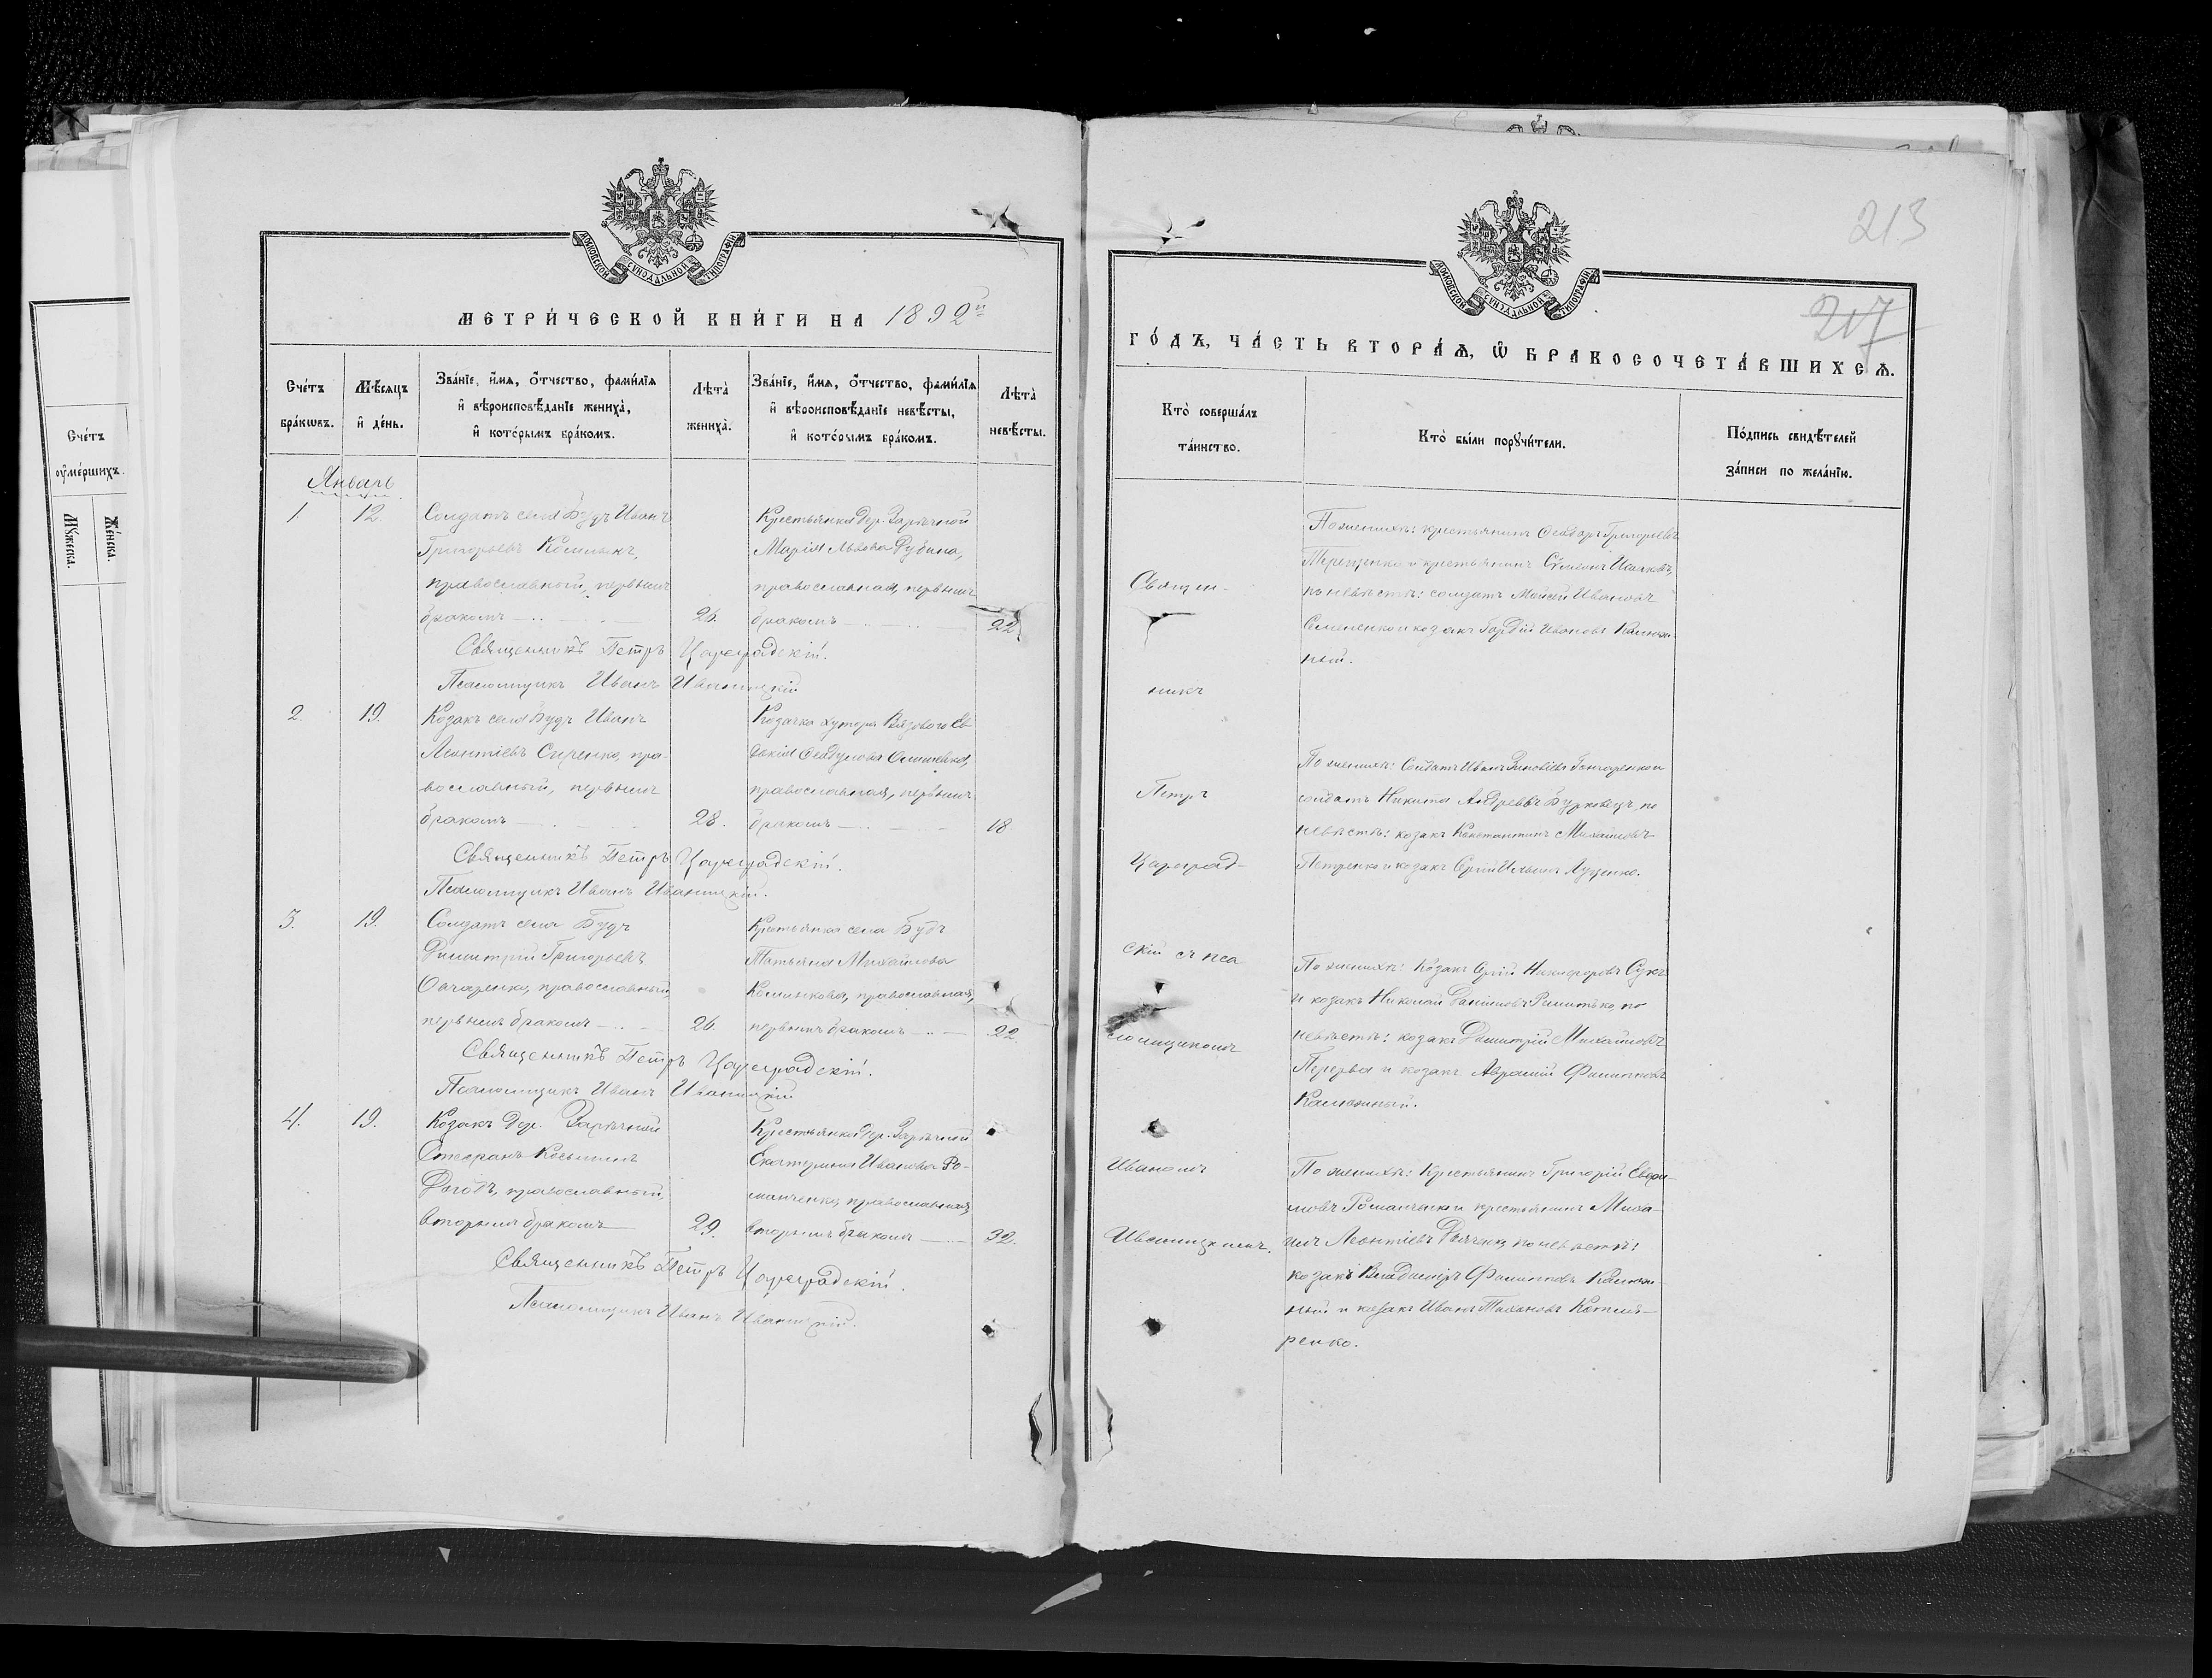 МОСКОВСКОЙ СУНОДАЛЬНОЙ ТИПОГРАФІИ
МЕТРИ́ЧЕСКОЙ КНИ́ГИ НА 1892й
Сче́тъ бра́кωвъ.
Мѣ́сяцъ и҆ де́нь.
Зва́нїе, и҆́мя, ѻ҆́тчество, фами́лїя и҆ вѣроисповѣ́данїе жениха̀, и҆ кото́рымъ бра́комъ.
Лѣта̀ жениха̀.
Зва́нїе, и҆́мя, ѻ҆́тчество, фами́лїя и҆ вѣроисповѣ́данїе невѣ́сты, и҆ кото́рымъ бра́комъ.
Лѣта̀ невѣ́сты.
Январь
1
12.
Солдатъ села Будъ Иванъ
Григорьевъ
православный, первымъ
бракомъ
26.
Крестьянка дер. Зарѣчной
Марія Львова Рубина,
православная, первымъ
бракомъ
22
Священникъ Петръ Цареградскій.
Псаломщикъ Иванъ Иваницкій
2.
19.
Козакъ села Будъ Иванъ
Леонтіевъ Сиренко, пра-
вославный, первымъ
бракомъ
28.
Козачка хутора Вязового Ев-
докія
православная, первымъ
бракомъ
18
Священникъ Петръ Цареградскій.
Псаломщикъ Иванъ Иваницкій.
3.
19.
Солдатъ села Будъ
Димитрій Григорьевъ
Овчаренко, православный,
первымъ бракомъ
26.
Крестьянка села Будъ
Татьяна Михайлова
православная,
первымъ бракомъ
22.
Священникъ Петръ Цареградскій.
Псаломщикъ Иванъ Иваницкій
4.
19.
Козакъ дер. Зарѣчной
Стефанъ Косьминъ
православный,
вторымъ бракомъ
29.
Крестьянка дер. Зарѣчной
Екатерина Иванова Ро-
манченко, православная,
вторымъ бракомъ
32.
Священникъ Петръ Цареградскій.
Псаломщикъ Иванъ Иваницкій.
Сче́тъ
ᲂу҆ме́ршихъ.
Мꙋ́жеска.
Же́нска.
213
217
МОСКОВСКОЙ СУНОДАЛЬНОЙ ТИПОГРАФІИ
ГО́ДЪ, ЧА́СТЬ ВТОРА́Я, Ѽ БРАКОСОЧЕТА́ВШИХСЯ.
Кто̀ соверша́лъ та́инство.
Кто̀ бы́ли порꙋчи́тели.
По́дпись свидѣ́телей за́писи по жела́нїю.
Священ-
никъ
Петръ
Цареград-
скій съ пса
ломщикомъ
Иваномъ
Иваницкимъ.
По женихѣ: крестьянинъ Ѳеодоръ Григорьевъ
Терещенко и крестьянинъ Сѵмеонъ
по невѣстѣ: солдатъ Моисей Ивановъ
Семененко и козакъ Гордій Ивановъ Калюж-
ный.
По женихѣ: Солдатъ Иванъ Зиновіевъ Гончаренко и
солдатъ Никита Андреевъ Бурковецъ, по
невѣстѣ: козакъ Константинъ Михайловъ
Петренко и козакъ Сергій Ильинъ Луценко.
По женихѣ: Козакъ Сергій Никифоровъ
и козакъ Николай по
невѣстѣ: козакъ Димитрій Михайловъ
Перерва и козакъ Аврамій Филипповъ
Калюжный.
По женихѣ: Крестьянинъ Григорій Евфи-
мовъ Романченко и крестьянинъ Миха-
илъ Леонтіевъ по невѣстѣ:
козакъ Владиміръ Филипповъ Калюж-
ный и козакъ Иванъ Тихоновъ Котля-
ренко.